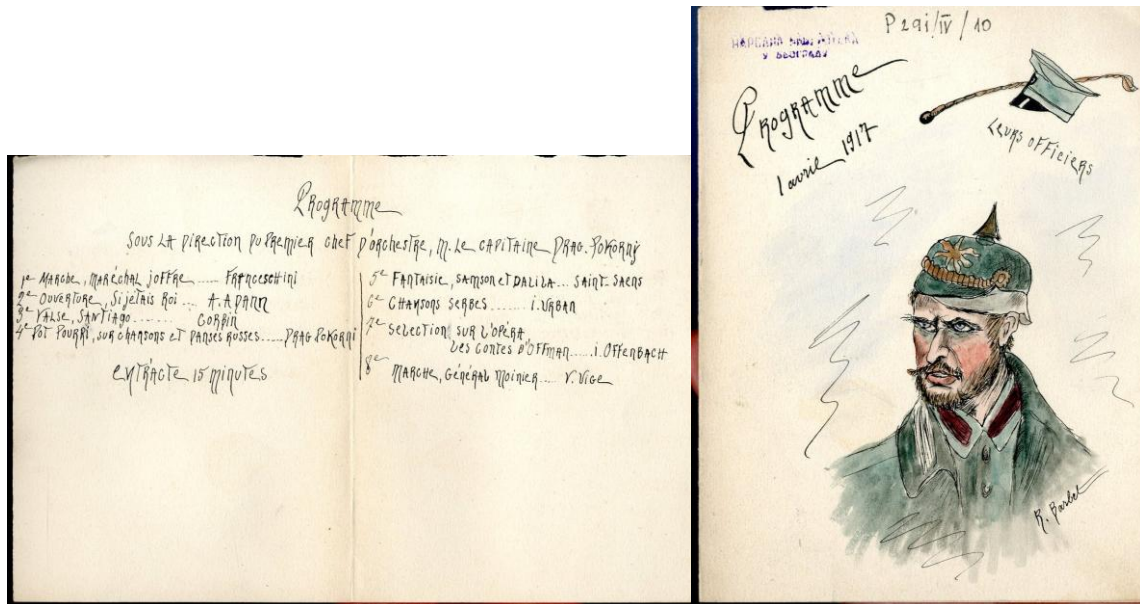 Programme
Sous la direction du premier chef d'orchestre, M. le capitaine Drag. Pokorni
1e Marche, Maréchal Joffre ..... Franceschini
2e Ouverture, Si jétais Roi .... A. Adann
3e Valse, Santiago ........ Corbin
4e Pot Pourri, sur chansons et danses russes ..... Drag Pokorni
entracte 15 minutes
5e Fantaisie, Samson et Dalila ... Saint. Saens
6e Chansons serbes ....... i. Urban
7e Selection sur l'opéra
Les contes d'Offman ..... i. Offenbach
8e Marche, Général Moinier .... V. Vige
P 291/IV/10
НАРОДНА БИБЛИОТЕКА
У БЕОГРАДУ
Programme
1 avril 1917
Leurs officiers
R. Barbet